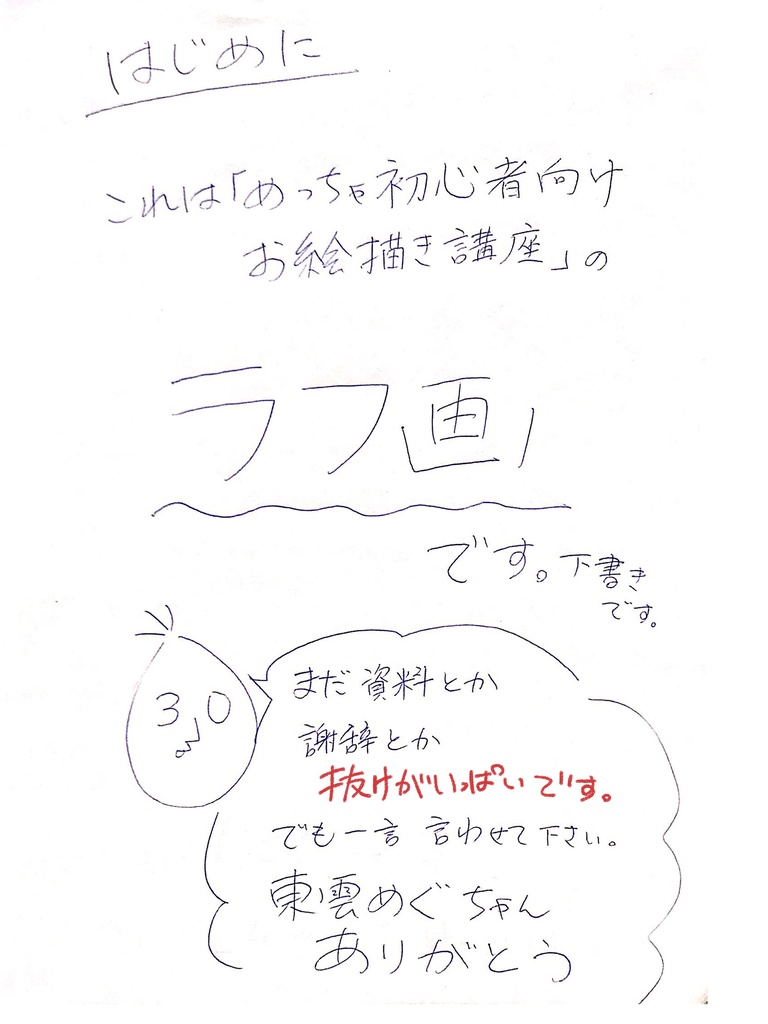 はじめに
これは「めっちゃ初心者向け
お絵描き講座」の
ラフ画
です。下書き
です。
30
まだ資料とか
謝辞とか
抜けがいっぱいです。
でも一言 言わせて下さい。
東雲めぐちゃん
ありがとう